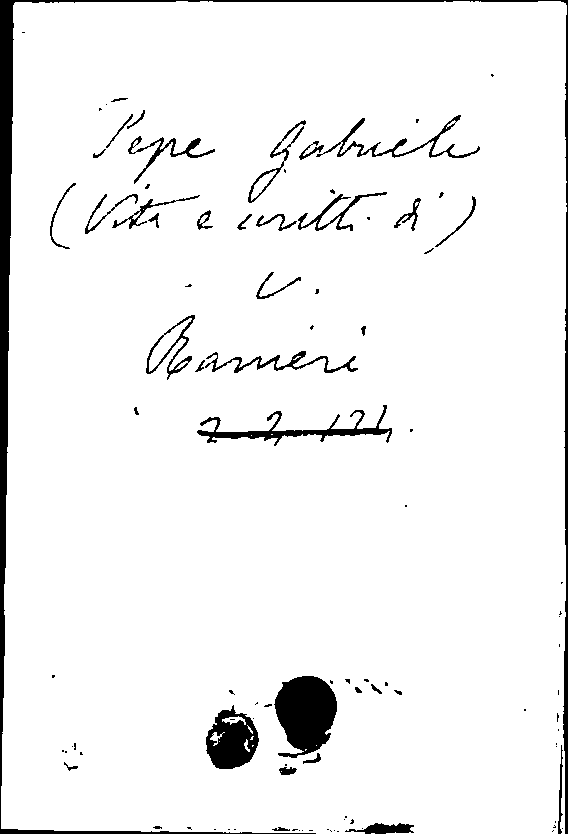 Pepe Gabriele
(Vita e scritti di)
V.
Ranieri